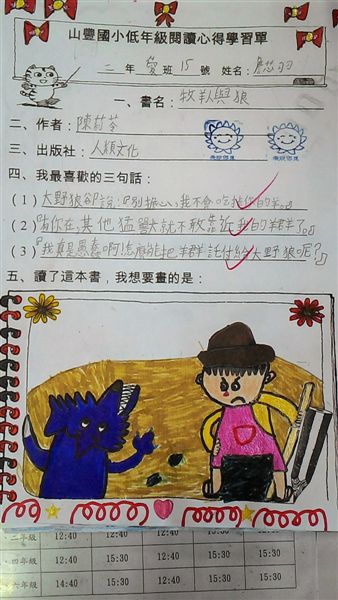 山豐國小低年級閱讀心得學習單
二年愛班15號 姓名：
一、書名：牧羊人與狼
二、作者：陳
三、出版社：人類文化
四、我最喜歡的三句話：
(1)大野狼卻說：『別擔心，我不會吃掉你的羊。』
(2)『有你在，其他猛獸就不敢靠近我的羊群了。』
(3)『我真是愚蠢啊！怎麼能把羊群託付給大野狼呢？』
五、讀了這本書，我想要畫的是：
二年級 12:40 12:40 12:40
四年級 12:40 15:30 12:40 15:30
六年級 14:40 15:30 15:30 15:30